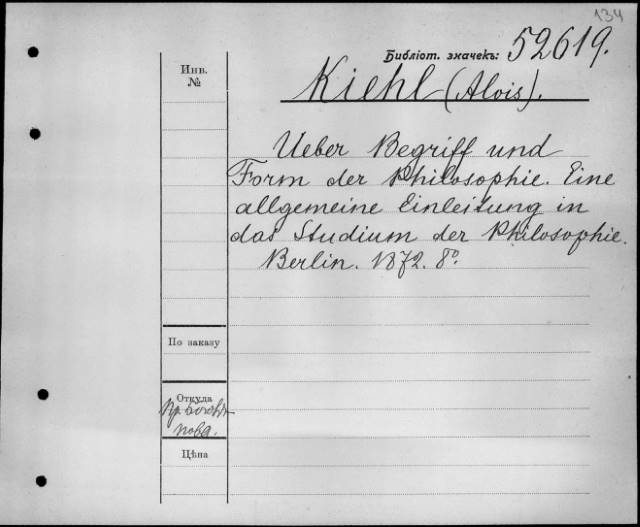 134
Библіот. значекъ: 52619.
Инв.
№
Kiehl (Alois).
Ueber Begriff und
Form der Philosophie. Eine
allgemeine Einleitung in
das Studium der Philosophie.
Berlin. 1872. 8°.
По заказу
Откуда
Цѣна